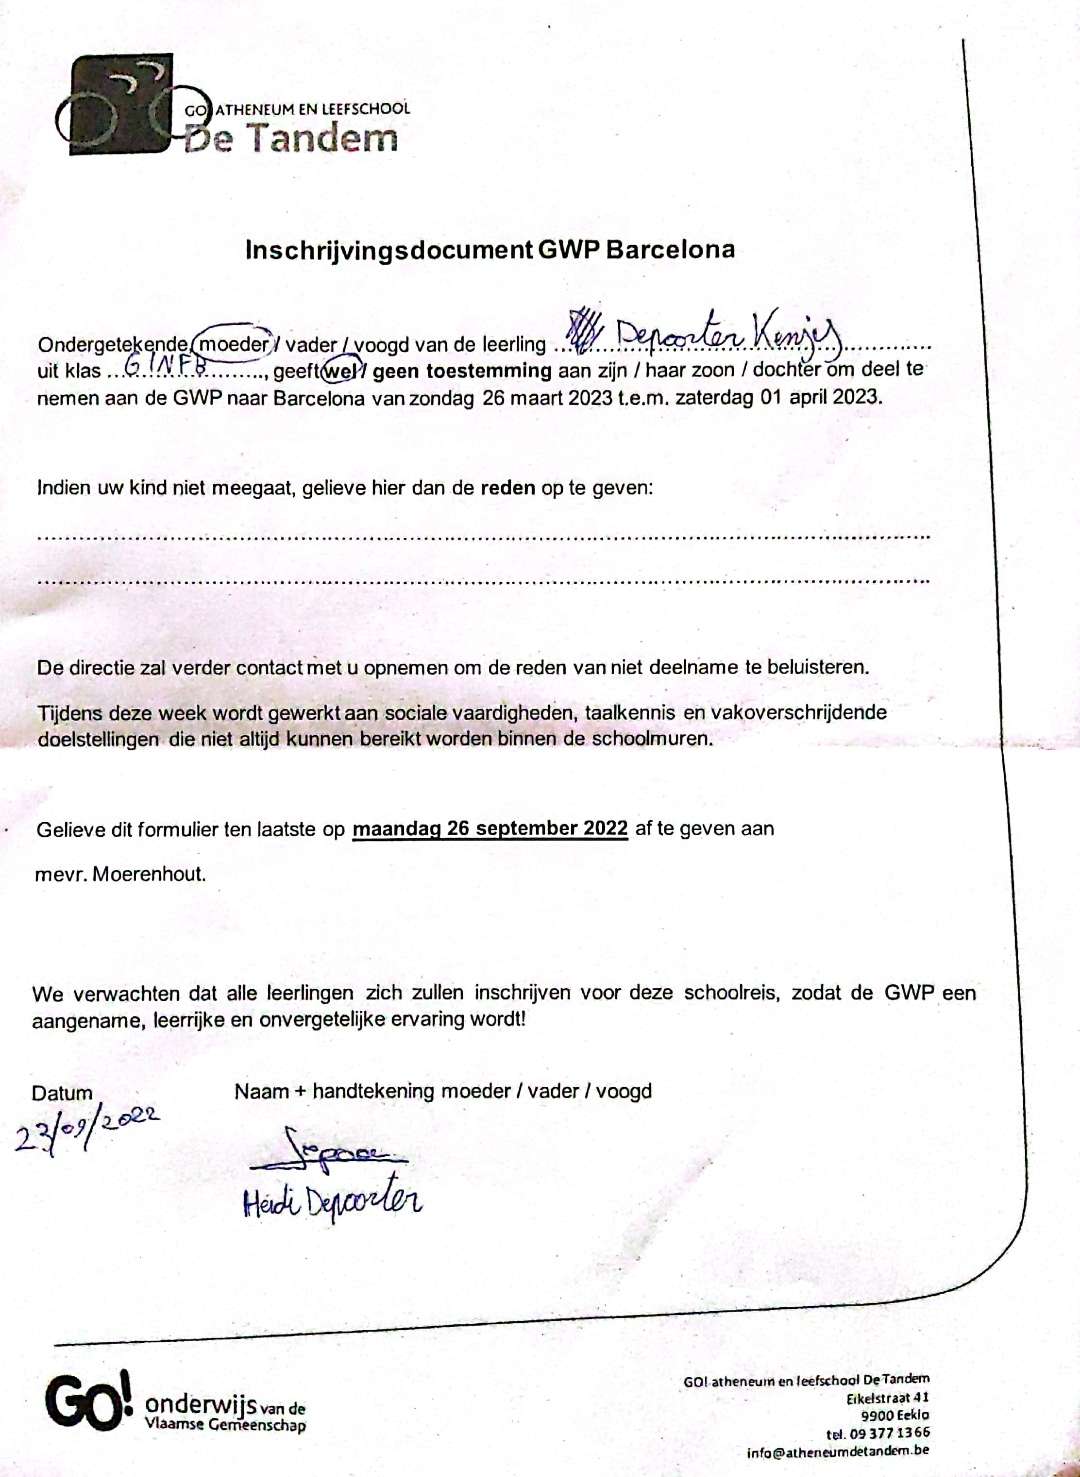 GO! ATHENEUM EN LEEFSCHOOL
De Tandem
Inschrijvingsdocument GWP Barcelona
Ondergetekende, moeder / vader / voogd van de leerling ... Depoorter Kenjy ...
uit klas ... GINFB ..., geeft wel / geen toestemming aan zijn / haar zoon / dochter om deel te
nemen aan de GWP naar Barcelona van zondag 26 maart 2023 t.e.m. zaterdag 01 april 2023.
Indien uw kind niet meegaat, gelieve hier dan de reden op te geven:
De directie zal verder contact met u opnemen om de reden van niet deelname te beluisteren.
Tijdens deze week wordt gewerkt aan sociale vaardigheden, taalkennis en vakoverschrijdende
doelstellingen die niet altijd kunnen bereikt worden binnen de schoolmuren.
Gelieve dit formulier ten laatste op maandag 26 september 2022 af te geven aan
mevr. Moerenhout.
We verwachten dat alle leerlingen zich zullen inschrijven voor deze schoolreis, zodat de GWP een
aangename, leerrijke en onvergetelijke ervaring wordt!
Datum Naam + handtekening moeder / vader / voogd
23/09/2022
Heidi Depoorter
GO! onderwijs van de
Vlaamse Gemeenschap
GO! atheneum en leefschool De Tandem
Eikelstraat 41
9900 Eeklo
tel. 09 377 13 66
info@atheneumdetandem.be